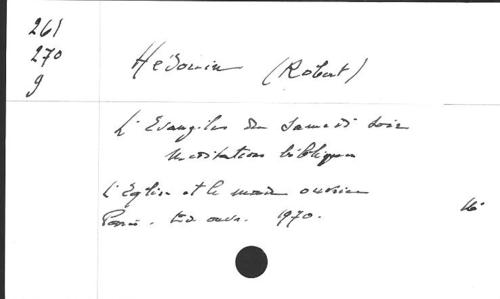 261
270
9
Hédouin (Robert)
L'Evangile du samedi soir
Méditations bibliques
L'Eglise et le monde ouvrier
Paris. Ed. ouvr. 1970.
16°